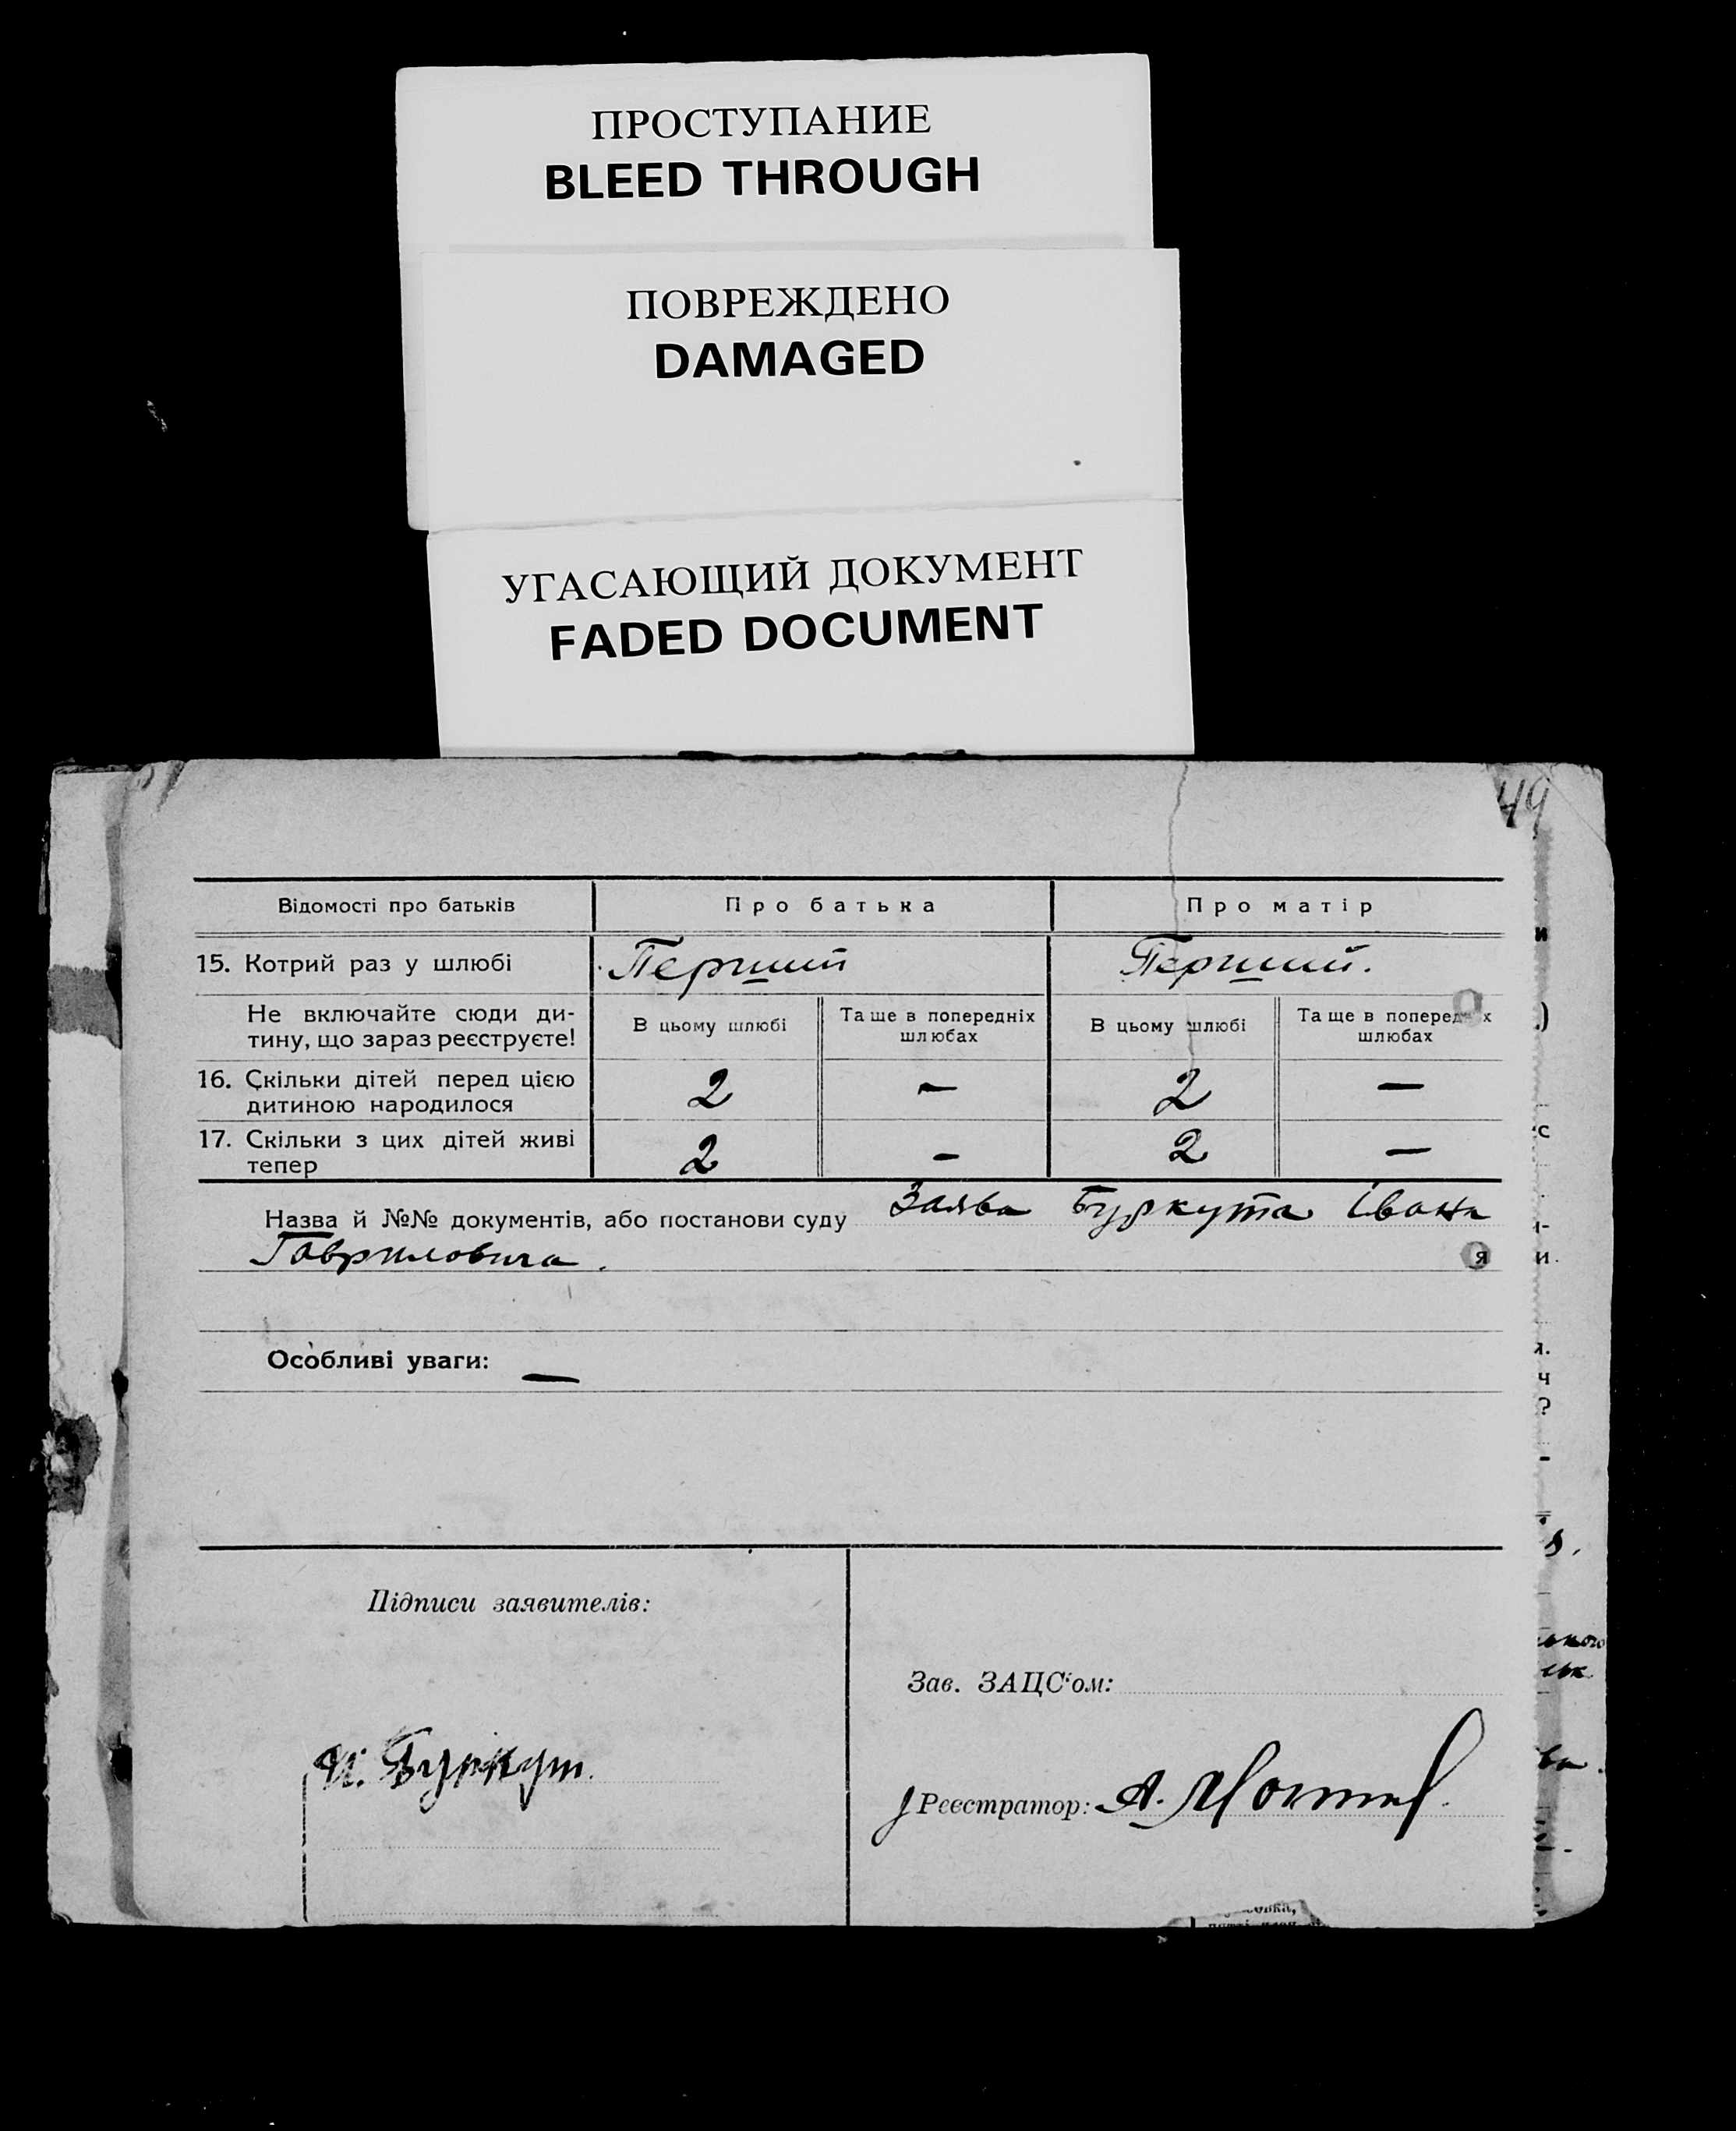 ПРОСТУПАНИЕ
BLEED THROUGH
ПОВРЕЖДЕНО
DAMAGED
УГАСАЮЩИЙ ДОКУМЕНТ
FADED DOCUMENT
49
Відомості про батьків
Про батька
Про матір
15. Котрий раз у шлюбі
Перший
Перший.
Не включайте сюди ди-
тину, що зараз реєструєте!
В цьому шлюбі
Та ще в попередніх
шлюбах
В цьому шлюбі
Та ще в попередніх
шлюбах
16. Скільки дітей перед цією
дитиною народилося
2
—
2
—
17. Скільки з цих дітей живі
тепер
2
—
2
—
Назва й №№ документів, або постанови суду Заява Буркута Івана
Гавриловича.
Особливі уваги: —
Підписи заявителів:
Зав. ЗАЦС'ом:
И. Буркут.
Реєстратор: А.